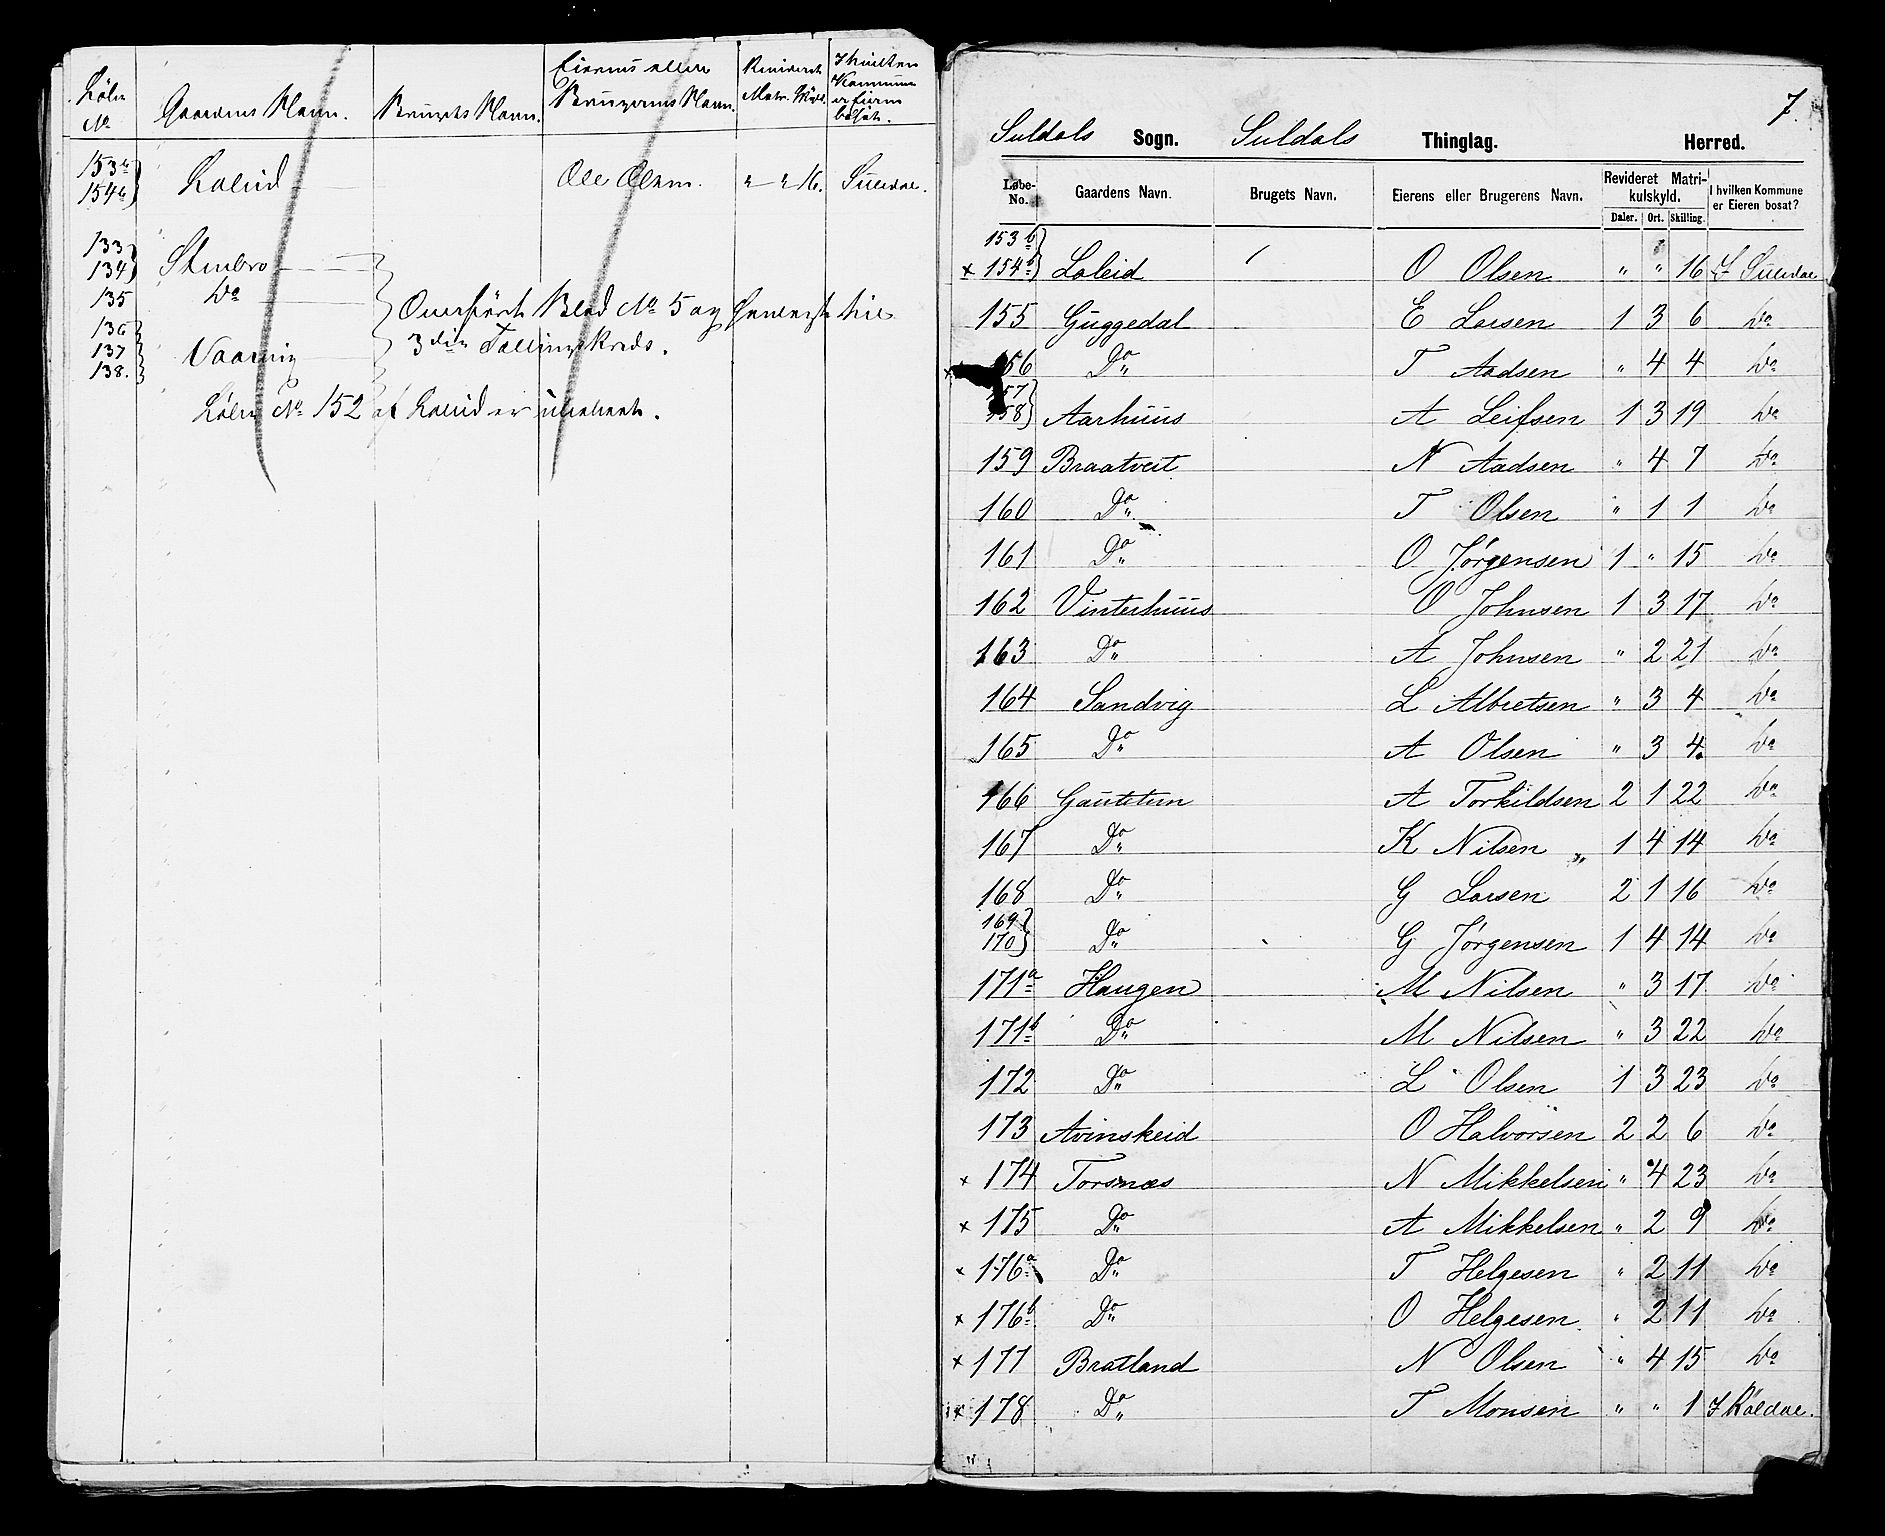 Løbe No | Gaardens Navn. | Brugets Navn. | Eierens eller Brugerens Navn. | Revideret Matr. Skyld. | I hvilken Kommune er Eieren bosat.
153b 154b } Loleid | Ole Olsen. | " — " 16. | Suledal.
133 134 } Stenbro
135 Do
136 137 138. } Vaaning
Overført Blad No 5 og henlagt til
3die Tællingskreds.
Løbe No 152 af Loleid er ubeboet.
7.
Suldals Sogn. Suldals Thinglag. Herred.
Løbe-No. | Gaardens Navn. | Brugets Navn. | Eierens eller Brugerens Navn. | Revideret Matrikulskyld. Daler. Ort. Skilling. | I hvilken Kommune er Eieren bosat?
153b
x 154b } Loleid | O Olsen | " " 16 | I Suledal
155 Guggedal | E Larsen | 1 3 6 | Do
x 156 Do | T Aadsen | " 4 4 | Do
157
158 } Aarhuus | A Leifsen | 1 3 19 | Do
159 Braatveit | N Aadsen | " 4 7 | Do
160 Do | T Olsen | " 1 1 | Do
161 Do | O Jørgensen | 1 " 15 | Do
162 Vinterhuus | O Johnsen | 1 3 17 | Do
163 Do | A Johnsen | " 2 21 | Do
164 Sandvig | L Albretsen | " 3 4 | Do
165 Do | A Olsen | " 3 4 | Do
166 Gautetun | A Torkildsen | 2 1 22 | Do
167 Do | K Nilsen | 1 4 14 | Do
168 Do | G Larsen | 2 1 16 | Do
169
170 } Do | G Jørgensen | 1 4 14 | Do
171a Haugen | M Nilsen | " 3 17 | Do
171b Do | M Nilsen | " 3 22 | Do
172 Do | L Olsen | 1 3 23 | Do
173 Avinskeid | O Halvorsen | 2 2 6 | Do
x 174 Torsnæs | N Mikkelsen | " 4 23 | Do
x 175 Do | A Mikkelsen | " 2 9 | Do
x 176a Do | T Helgesen | " 2 11 | Do
x 176b Do | O Helgesen | " 2 11 | Do
x 177 Bratland | N Olsen | " 4 15 | Do
x 178 Do | T Monsen | " " 1 | I Røldal.